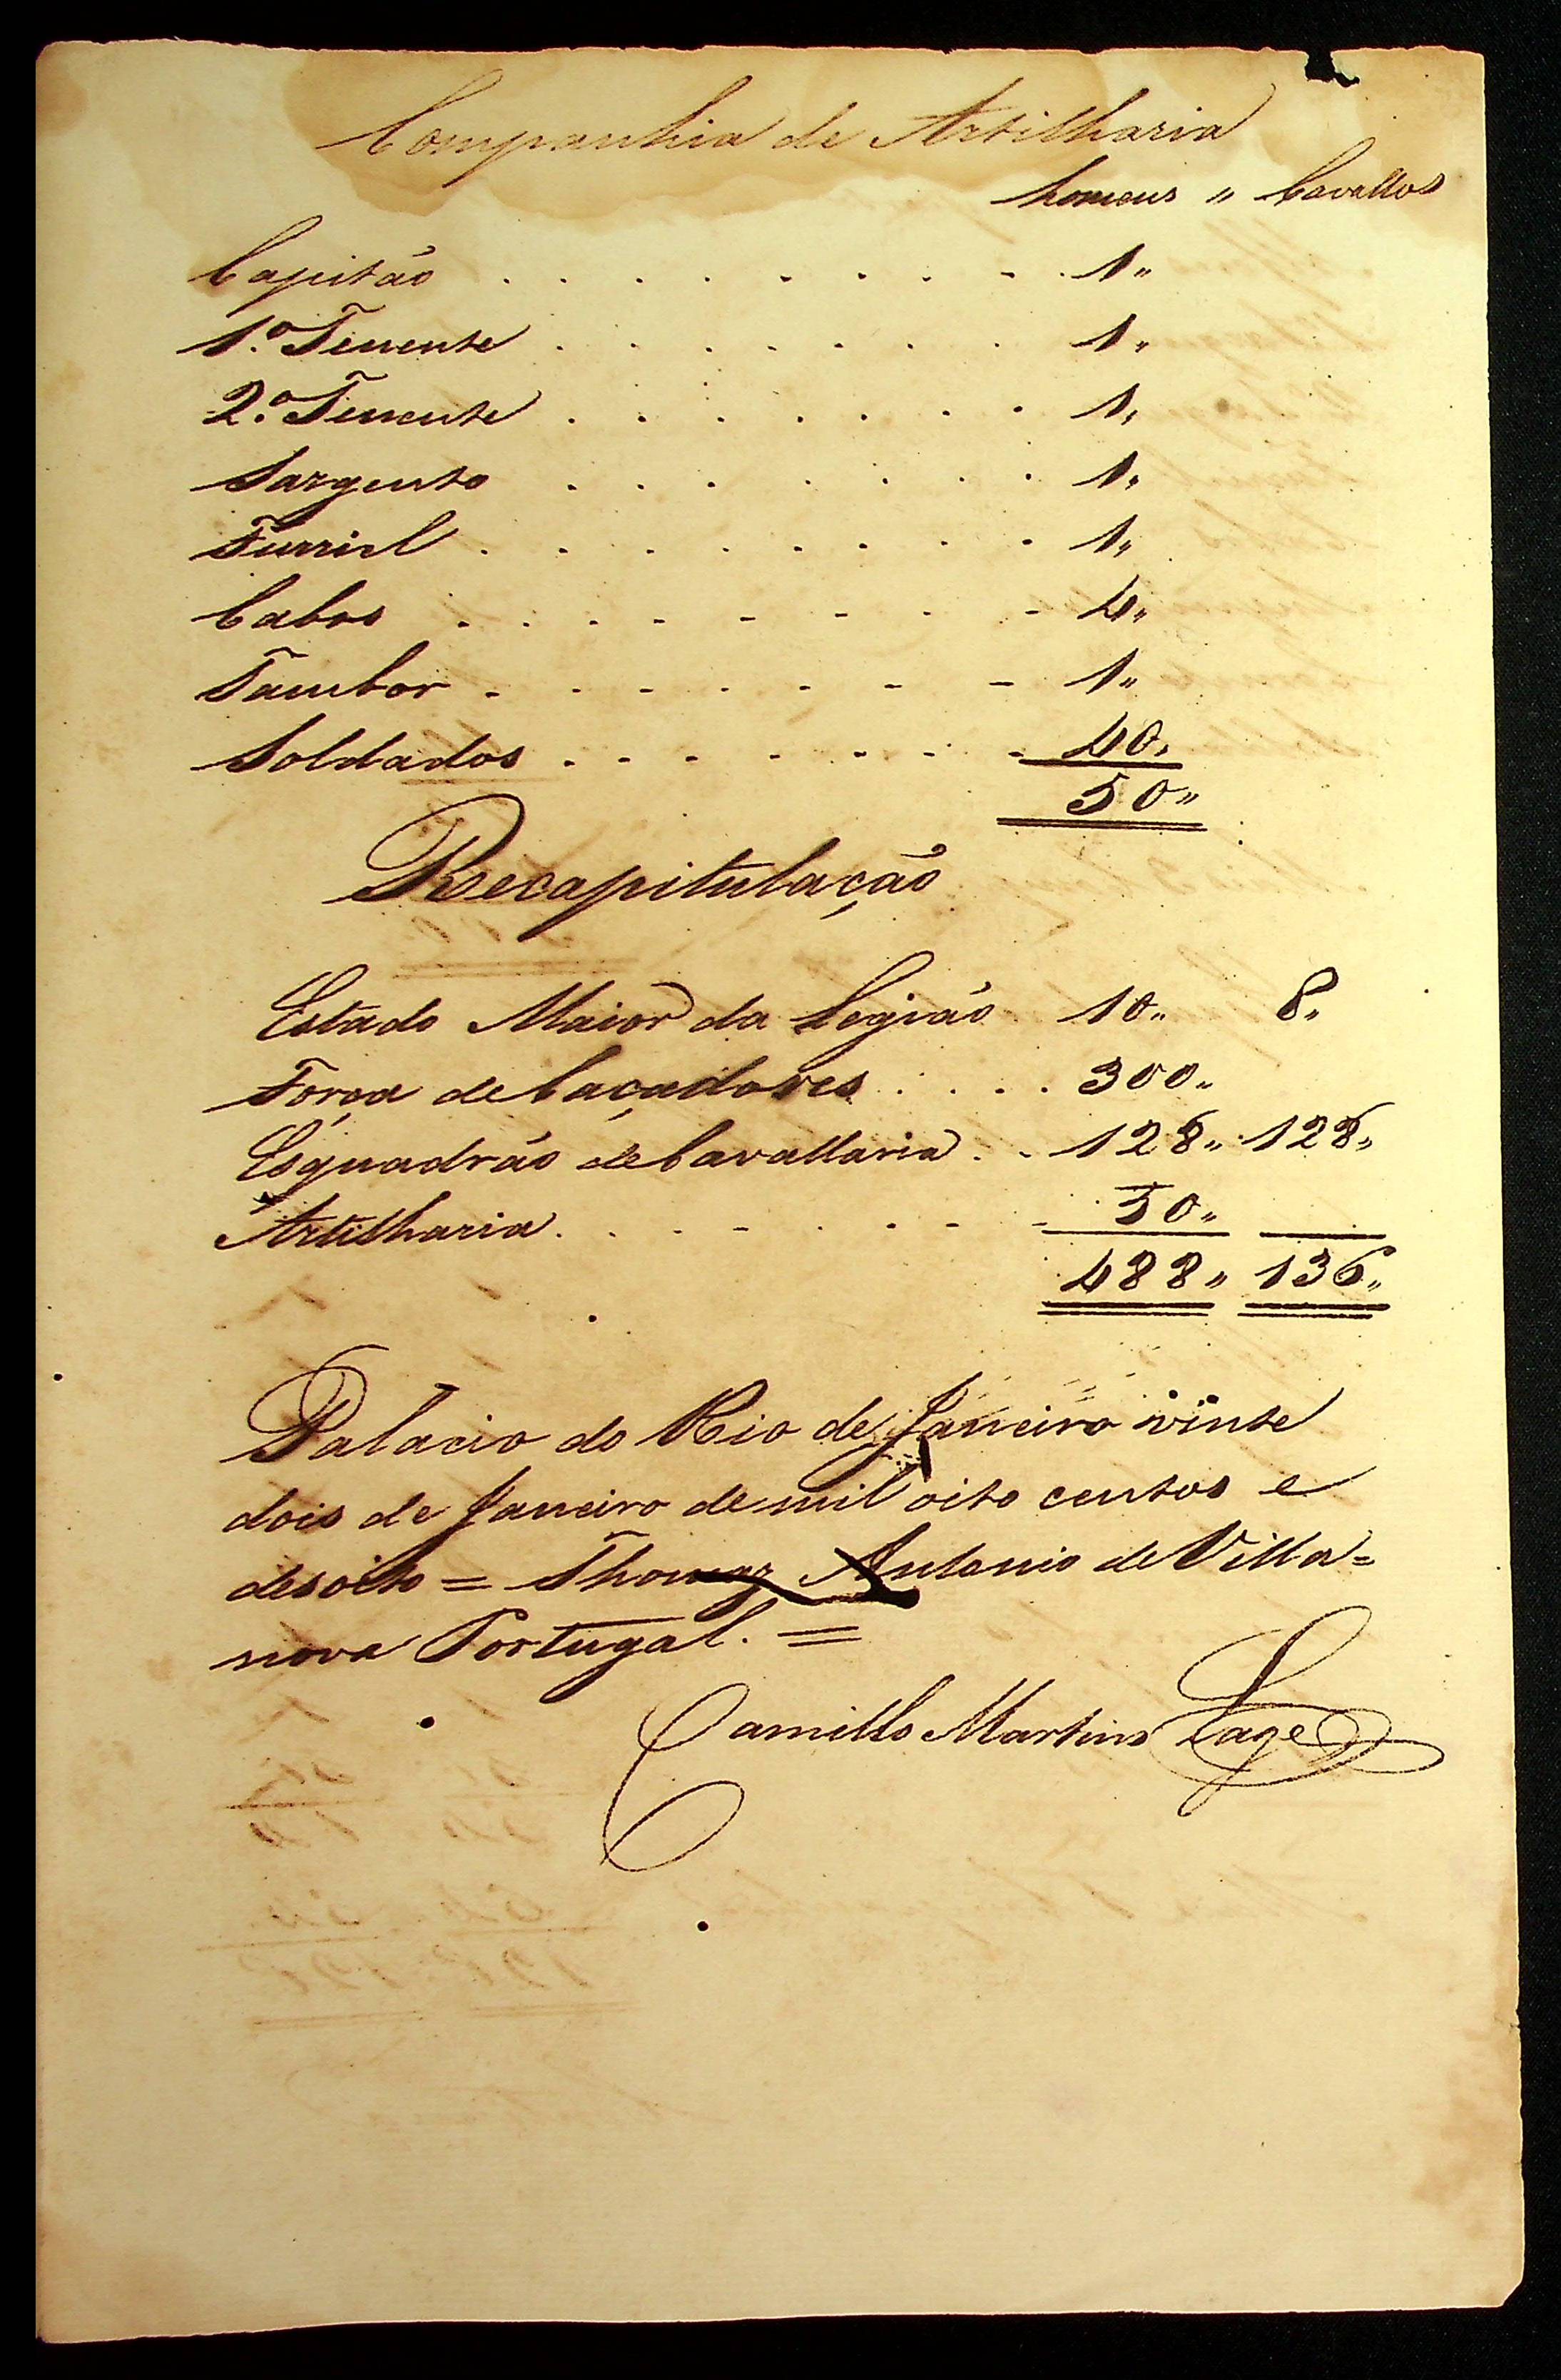 Companhia de Artilharia
homens " Cavallos
Capitão . . . . . . . . . 1"
1.º Tenente . . . . . . . 1"
2.º Tenente . . . . . . . 1"
Sargento . . . . . . . 1"
Furriel . . . . . . . . 1"
Cabos . . . . . . . . 4"
Tambor . . . . . . . 1"
Soldados . . . . . . . 40"
50"
Recapitulação
Estado Maior da Legião 10" 8"
Força de Caçadores . . . . 300"
Esquadrão de Cavallaria . . 128" 128"
Artilharia . . . . . . . 50"
488" 136"
Palacio do Rio de Janeiro vinte
dois de Janeiro de mil oito centos e
desoito = Thomaz Antonio de Villa=
nova Portugal. =
Camillo Martins Lage